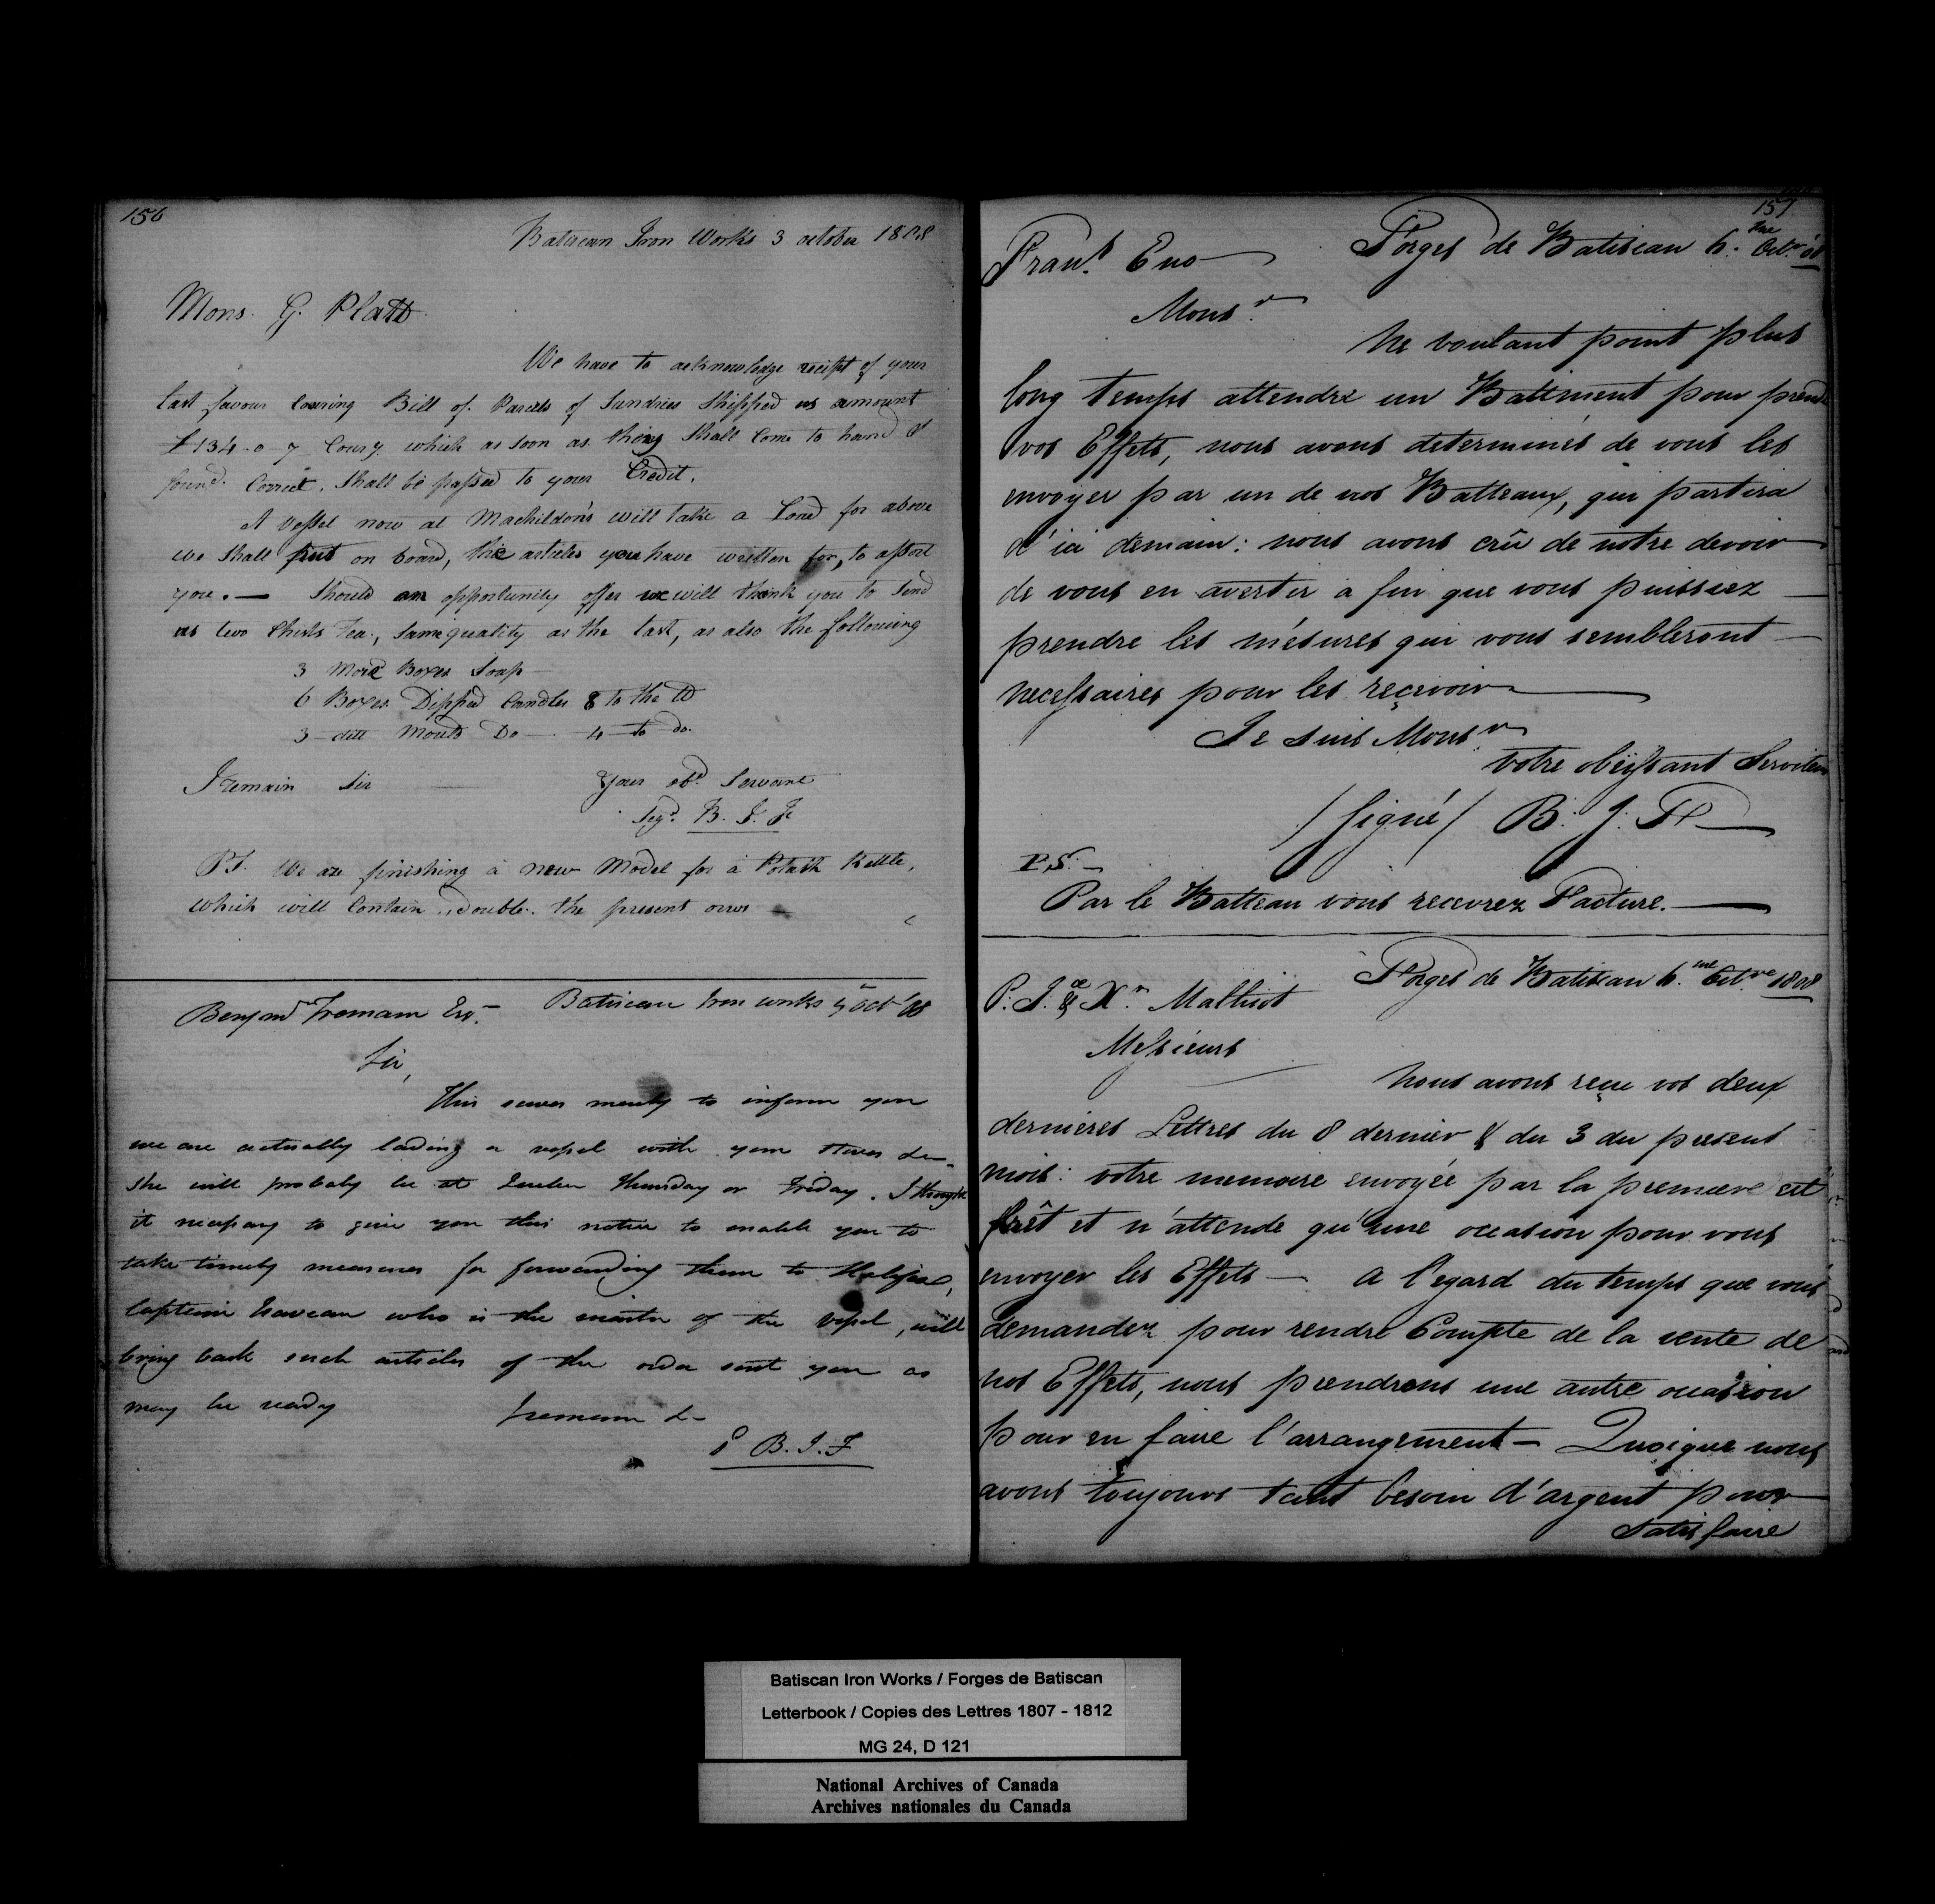 156
Batiscan Iron Works 3 october 1808
Mons. G. Platt
We have to acknowledge reciept of your
last favour Covering Bill of Parcels of Sundries Shipped us amount
£134-0-7 Coury. which as soon as they Shall Come to hand &
found Correct. Shall be passed to your Credit.
A Vessel now at Machildon's will take a Load for above
we Shall put on board, the articles you have written for, to assort
you. — Should an opportunity offer we will thank you to Send
us two Chests Tea, Same quality as the last, as also the following
3 More Boxes Soap —
6 Boxes Dipped Candles 8 to the lb
3 — ditt Moulds Do — 4 — to do.
I remain Sir Your obt. Servant
Sigd. B. I. F
PS. We are finishing a new Model for a Potash Kettle,
which will Contain double the present ones
Benjamn Fremam Esq. Batiscan Iron works 5 Oct '08
Sir,
This serves merely to inform you
we are actually lading a vessel with your Stoves &c.
She will probably be at Quebec Thursday or Friday. I thought
it necessary to give you this notice to enable you to
take timely measures for forwarding them to Halifax,
Captain who is the master of the Vessel, will
bring back such articles of the order sent you as
may be ready I remain &c
B. I. F
157
Frans. Eno Forges de Batiscan 6.me Octr. 08
Monsr.
Ne voulant point plus
long temps attendre un Battiment pour prendre
vos Effets, nous avons determinés de vous les
envoyer par un de nos Batteaux, qui partira
d'ici demain: nous avons crû de notre devoir
de vous en avertir a fin que vous puissiez
prendre les mésures qui vous sembleront
necessaires pour les reçevoir
Je suis Monsr.
votre obëissant Serviteur
/ Signé / B. I. F
P.S. —
Par le Batteau vous recevrez Facture.
Forges de Batiscan 6.me Octre. 1808
P. I. & Xr. Malhiot
Messieurs
Nous avons reçue vos deux
dernieres Lettres du 8 dernier & du 3 du present
mois: votre memoire envoyée par la premiere est
prêt et n'attende qu'une occasion pour vous
envoyer les Effets — A l'egard du temps que vous
demandez pour rendre Compte de la vente de
nos Effets, nous prendrons une autre occasion
pour en faire l'arrangement — Quoique nous
avons toujours tant besoin d'argent pour
satisfaire
Batiscan Iron Works / Forges de Batiscan
Letterbook / Copies des Lettres 1807 - 1812
MG 24, D 121
National Archives of Canada
Archives nationales du Canada